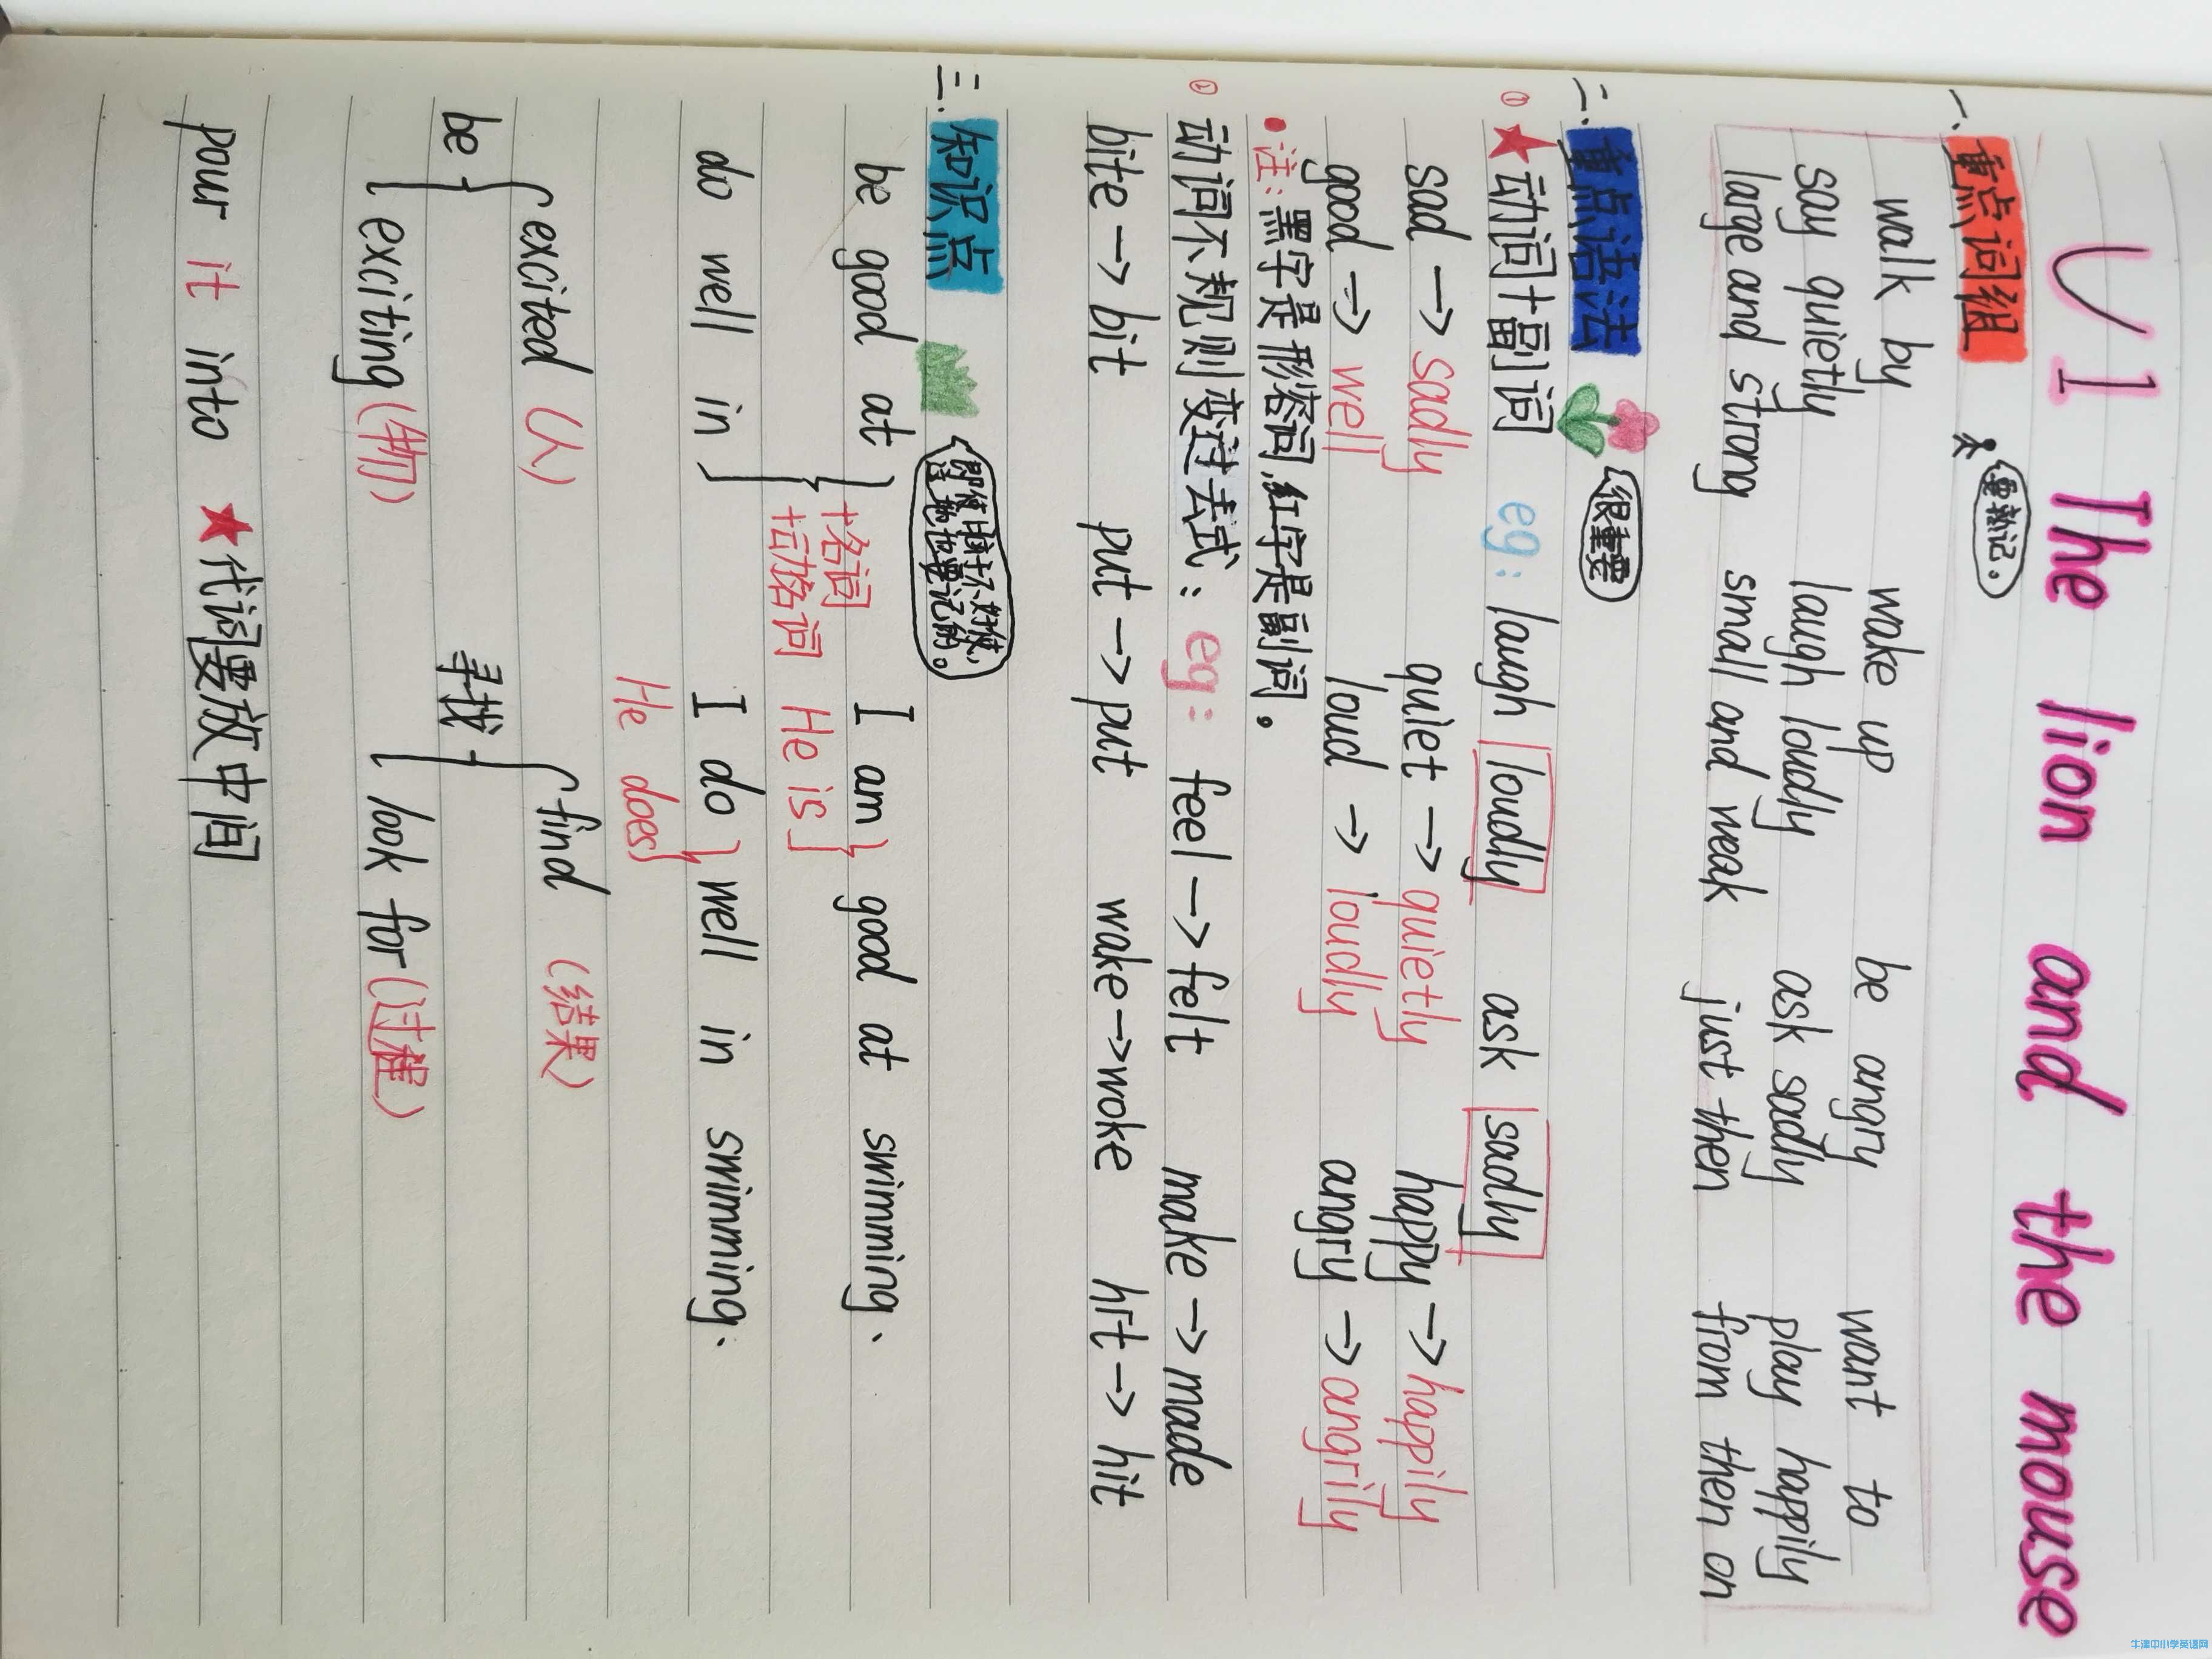 U1 The lion and the mouse
一、重点词组 要熟记。
walk by wake up be angry want to
say quietly laugh loudly ask sadly play happily
large and strong small and weak just then from then on
二、重点语法 很重要
① ★动词+副词 eg: laugh loudly ask sadly
sad → sadly quiet → quietly happy → happily
good → well loud → loudly angry → angrily
• 注: 黑字是形容词,红字是副词。
② 动词不规则变过去式: eg: feel → felt make → made
bite → bit put → put wake → woke hit → hit
三、知识点
be good at +名词 I am good at swimming.
+动名词 He is
do well in I do well in swimming.
He does
excited (人) find (结果)
be 寻找
exciting (物) look for (过程)
pour it into ★代词要放中间
牛津中小学英语网